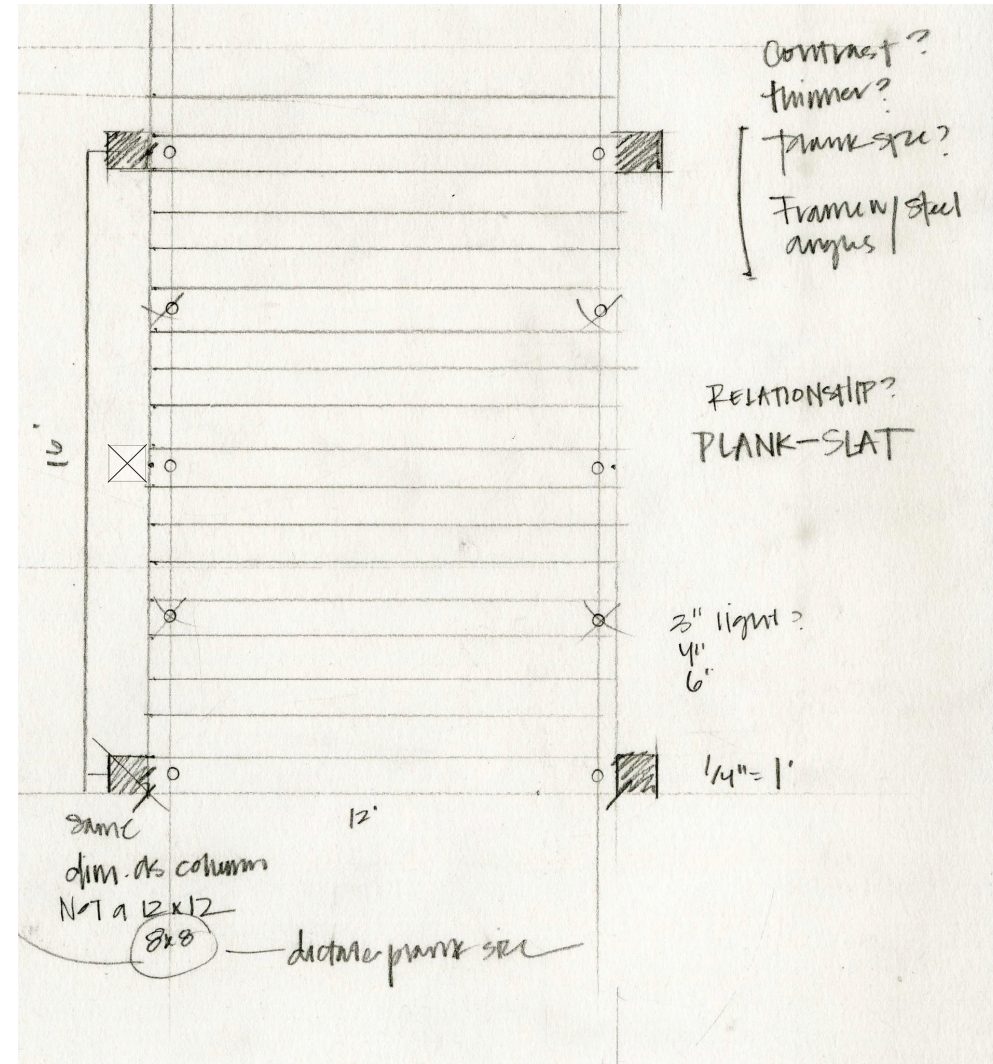 Contrast?
thinner?
plank size?
Frame w/ steel
angles
16'
RELATIONSHIP?
PLANK-SLAT
3" light?
4"
6"
1/4" = 1'
12'
same
dim. as column
Not a 12x12
8x8
dictate plank size